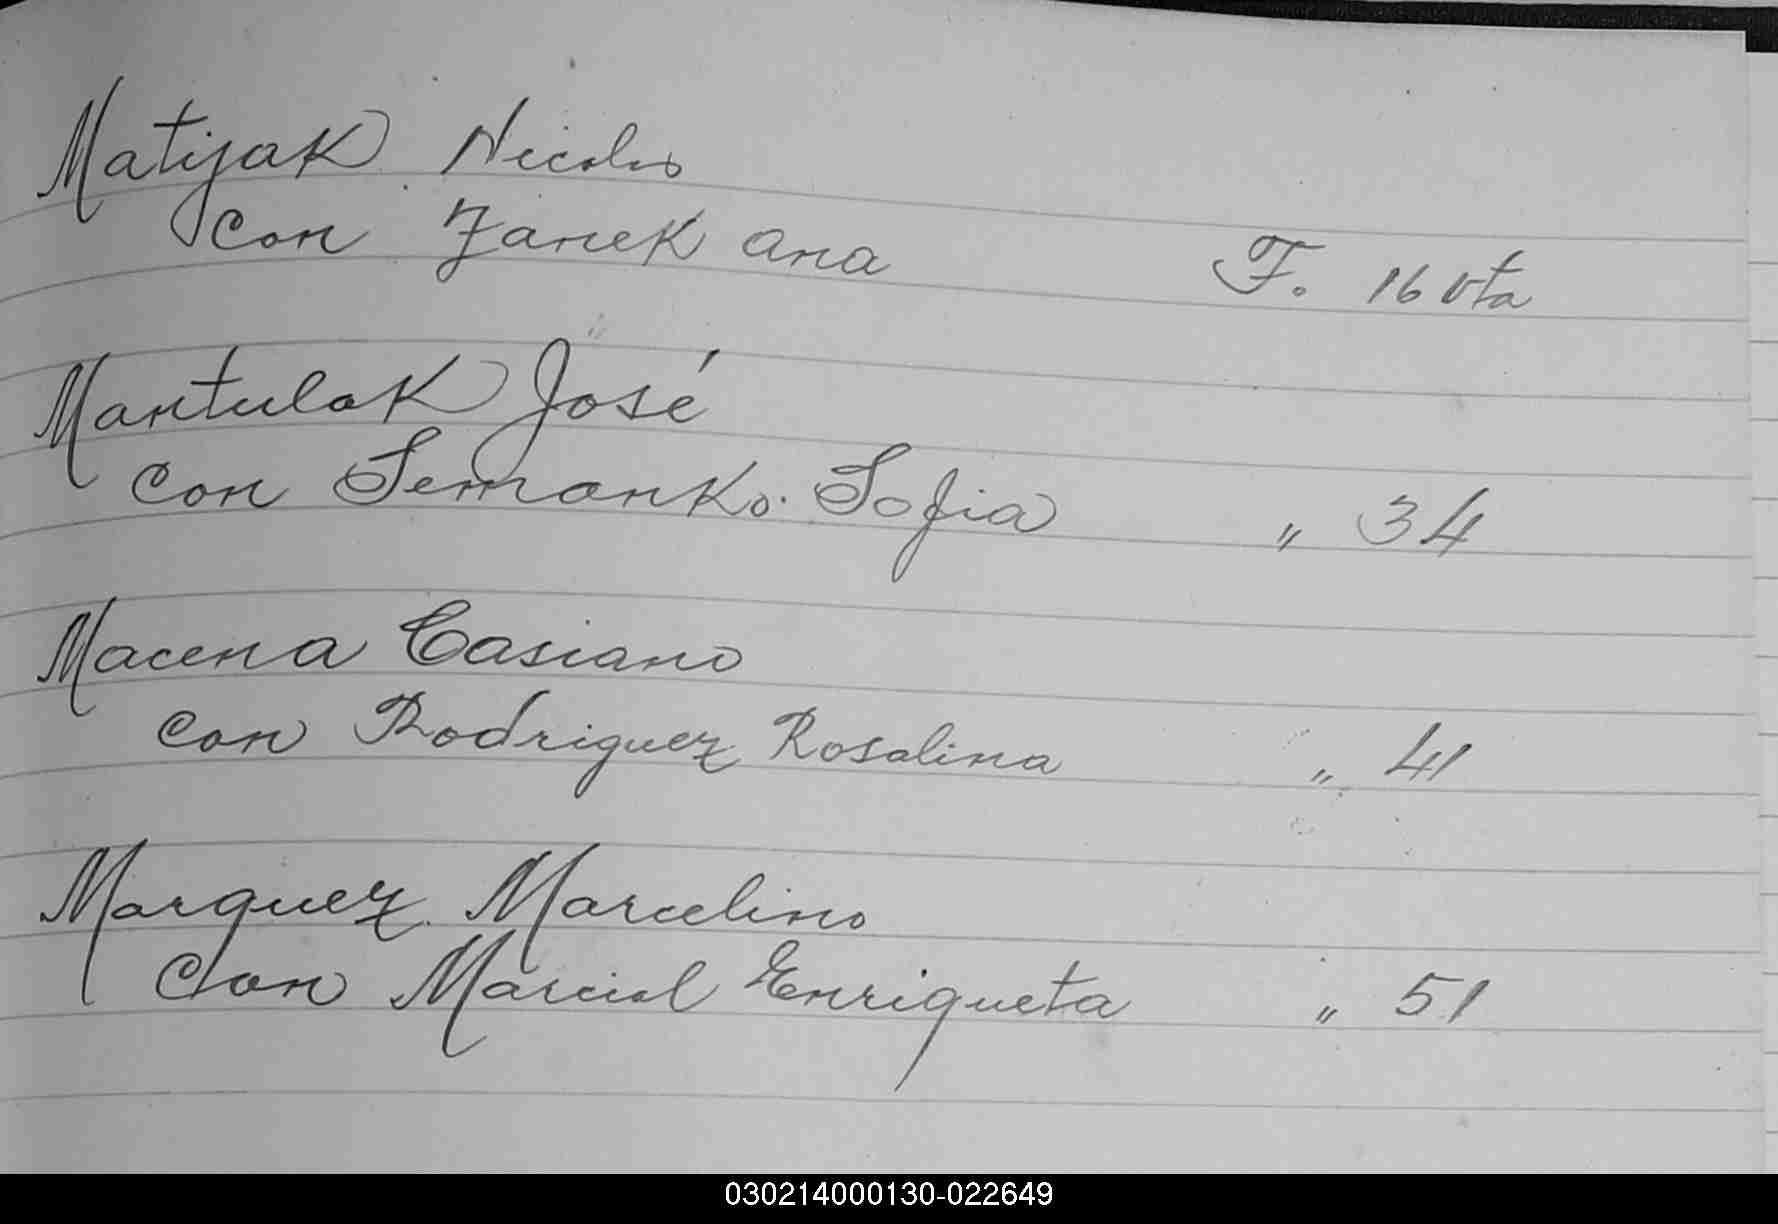 Matijak Nicolas
con Zanek Ana F. 16 vta
Mantulak José
con Semanko Sofia " 34
Macena Casiano
con Rodriguez Rosalina " 41
Marquez Marcelino
Con Marcial Enriqueta " 51
030214000130-022649